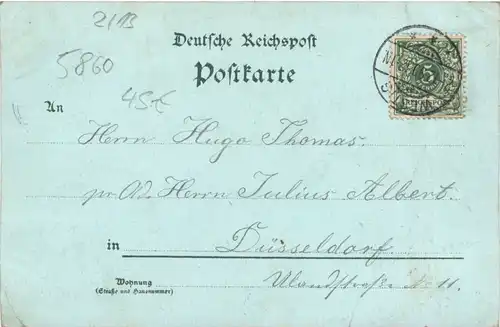 2/13
Deutsche Reichspost
5860
Postkarte
45€
An
Herrn Hugo Thomas.
pr. Ad. Herrn Julius Albert.
in Düsseldorf
Wohnung
(Straße und Hausnummer)
Ulandstraße No 11.
5